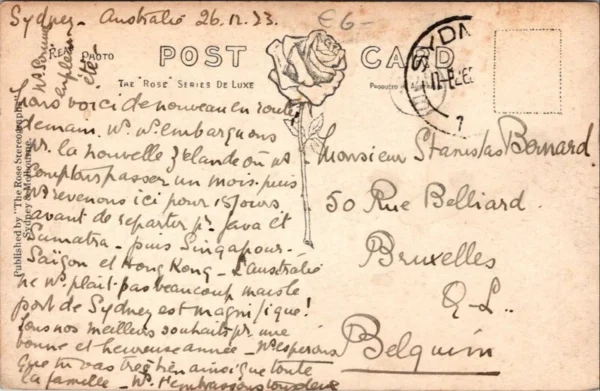 Sydney - Australie 26.12.23.
£6-
Real Photo
POST CARD
THE "ROSE" SERIES DE LUXE
Produced in Australia
Published by "The Rose Stereographs"
Sydney & Melbourne
SYDNEY
7
Ns. sommes
en plein
été!
Nous voici de nouveau en route
demain. Ns. Ns. embarquons
pr. la nouvelle Zélande où ns
comptons passer un mois. puis
Ns revenons ici pour 15 jours
avant de repartir pr. Java et
Sumatra - puis Singapour -
Saïgon et Hong Kong - L'Australie
ne Ns. plait pas beaucoup mais le
port de Sydney est magnifique!
Tous nos meilleurs souhaits pr. une
bonne et heureuse année - Ns. esperons
que tu vas très bien ainsi que toute
la famille - Ns. t'embrassons
Monsieur Stanislas Bernard.
50 Rue Belliard.
Bruxelles
Q-L.
Belgium